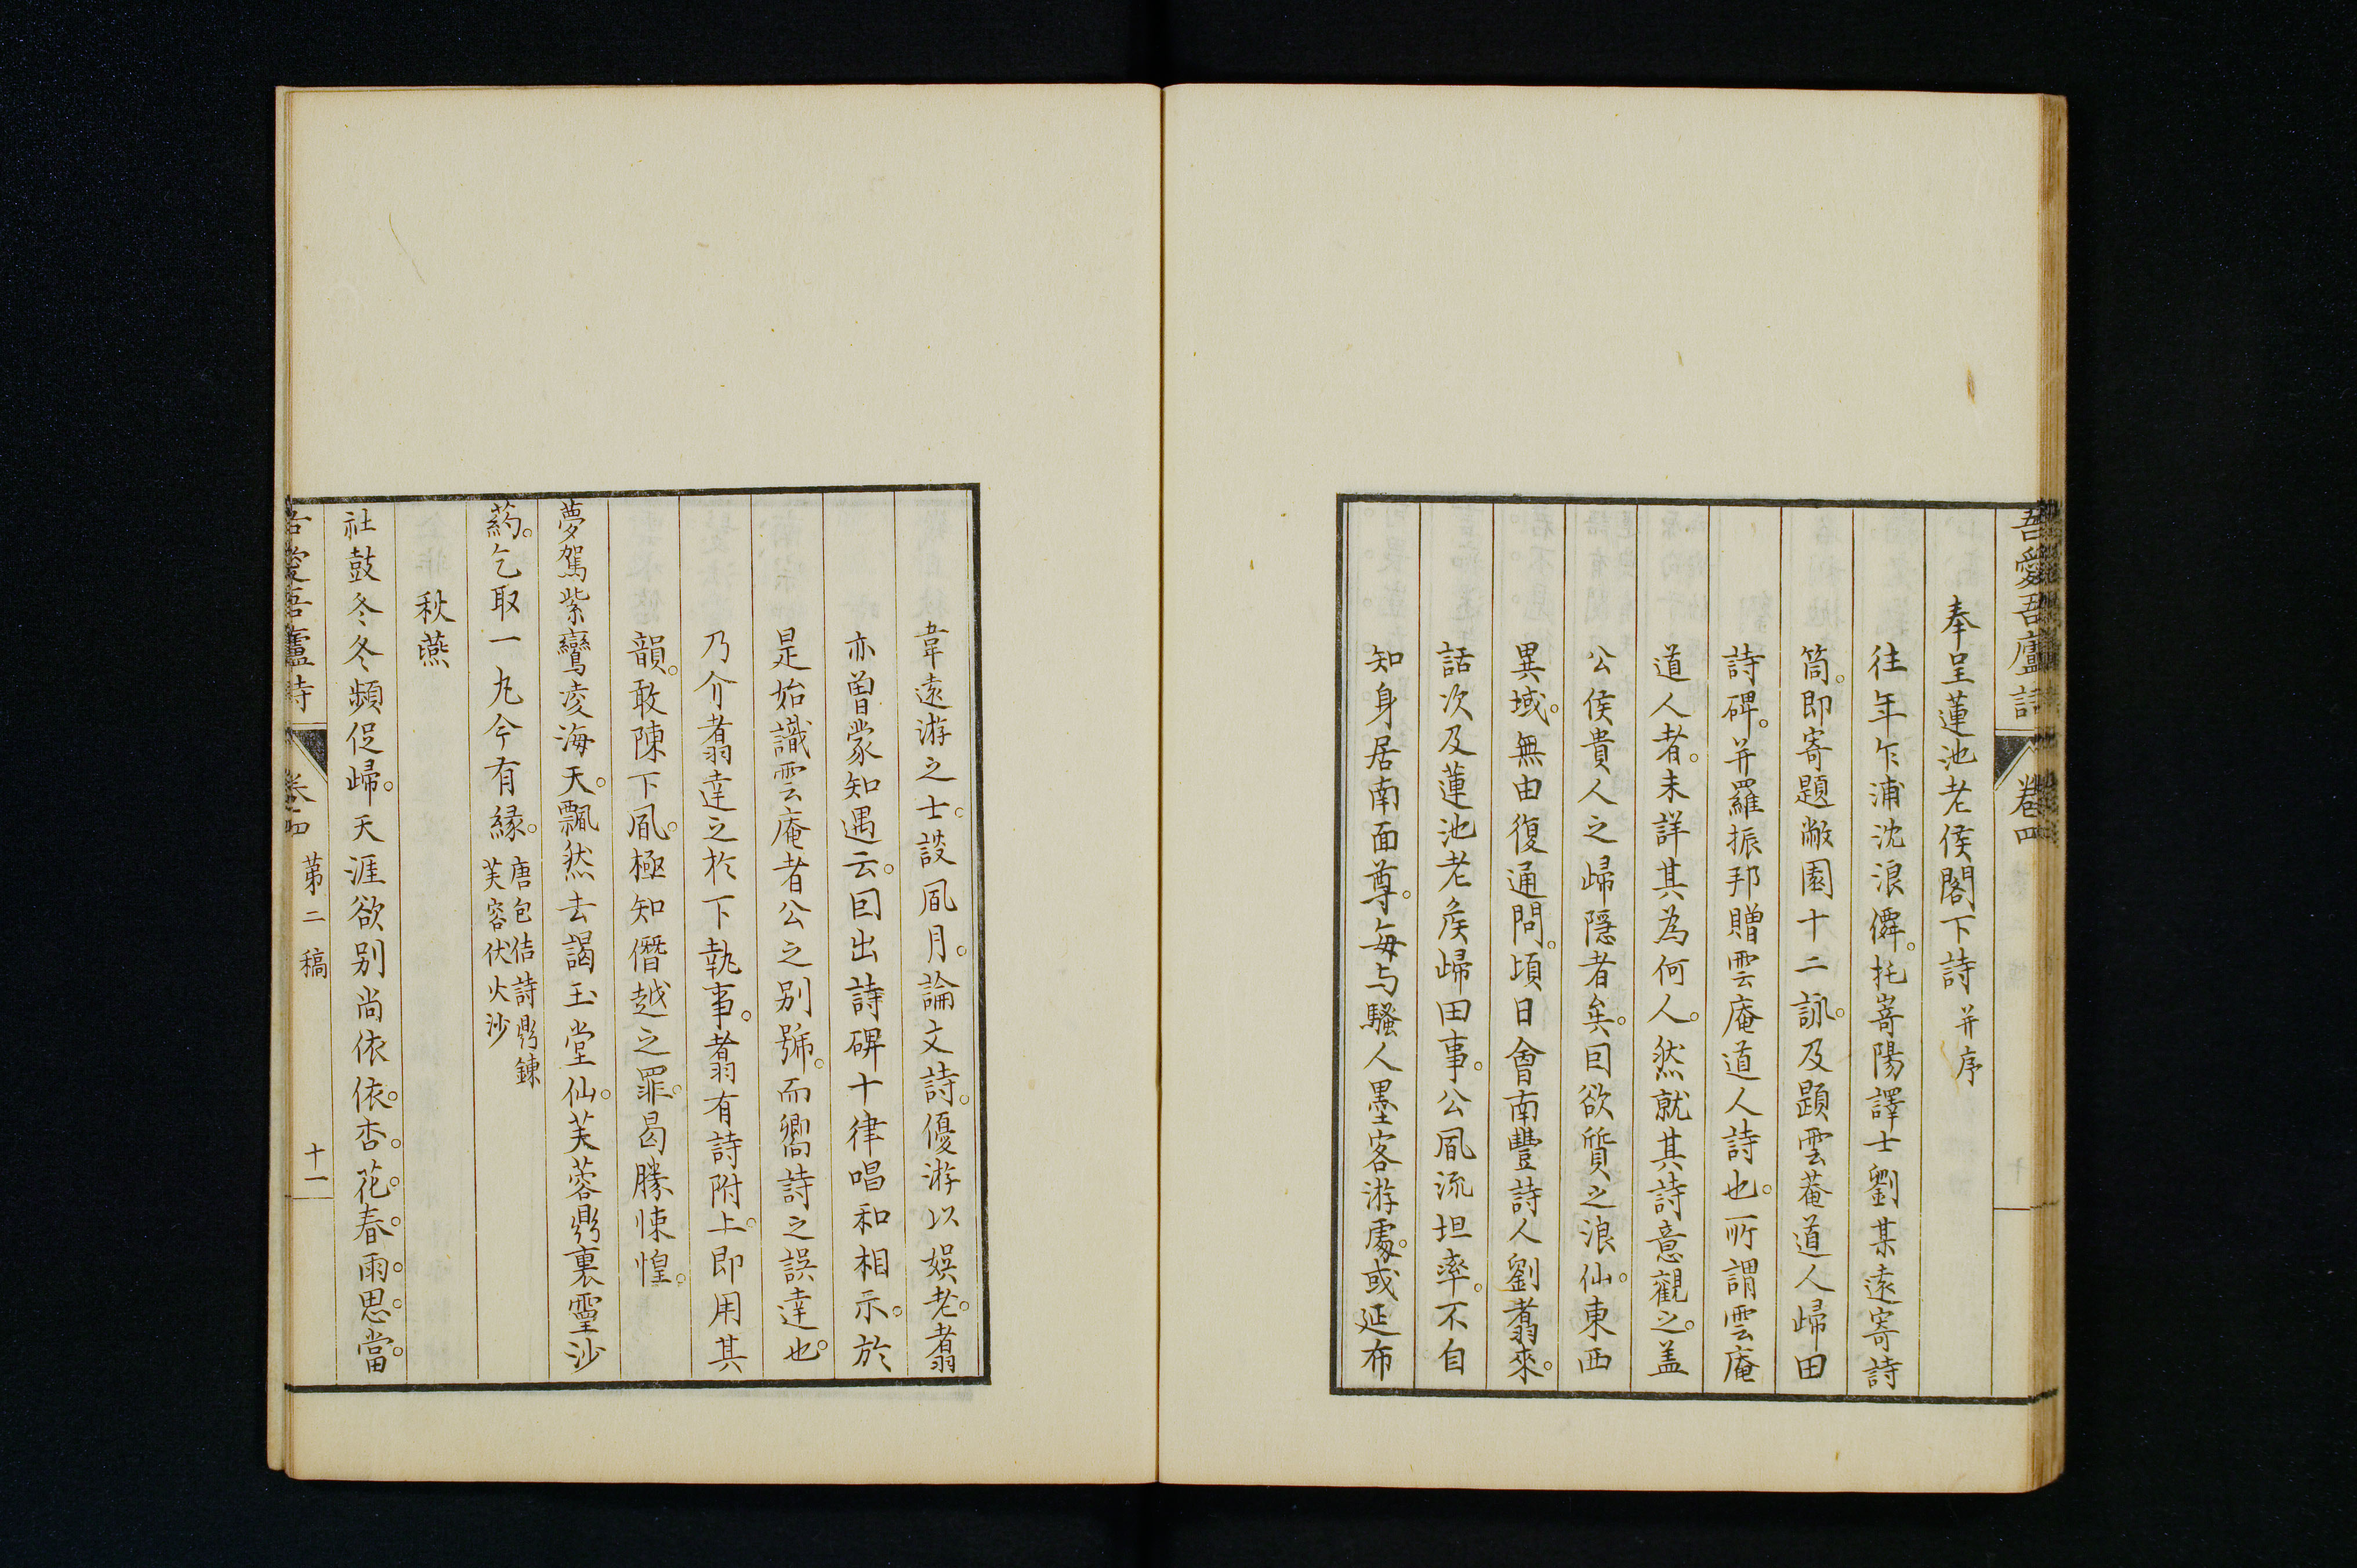 吾愛吾廬詩 卷四
奉呈蓮池老侯閣下詩 并序
往年乍浦沈浪僊。托嵜陽譯士劉某遠寄詩
筒。即寄題敝園十二詠。及題雲菴道人歸田
詩碑。并羅振邦贈雲庵道人詩也。所謂雲庵
道人者。未詳其為何人。然就其詩意觀之。盖
公侯貴人之歸隱者矣。因欲質之浪仙。東西
異域。無由復通問。頃日會南豐詩人劉翥來。
話次及蓮池老矦歸田事。公風流坦率。不自
知身居南面尊。每与騷人墨客游處。或延布
韋遠游之士。談風月。論文詩。優游以娯老。翥
亦曽蒙知遇云。因出詩碑十律唱和相示。於
是始識雲庵者公之别號。而嚮詩之誤達也。
乃介翥達之於下執事。翥有詩附上。即用其
韻。敢陳下風。極知僭越之罪。曷勝悚惶。
夢駕紫鸞凌海天。飄然去謁玉堂仙。芙蓉鼎裏靈沙
药。乞取一丸今有縁。唐包佶詩鼎鍊
芙容伏火沙
秋燕
社鼓冬冬頻促歸。天涯欲别尚依依。杏。花。春。雨。思。當。
吾愛吾廬詩 卷四 第二稿 十一